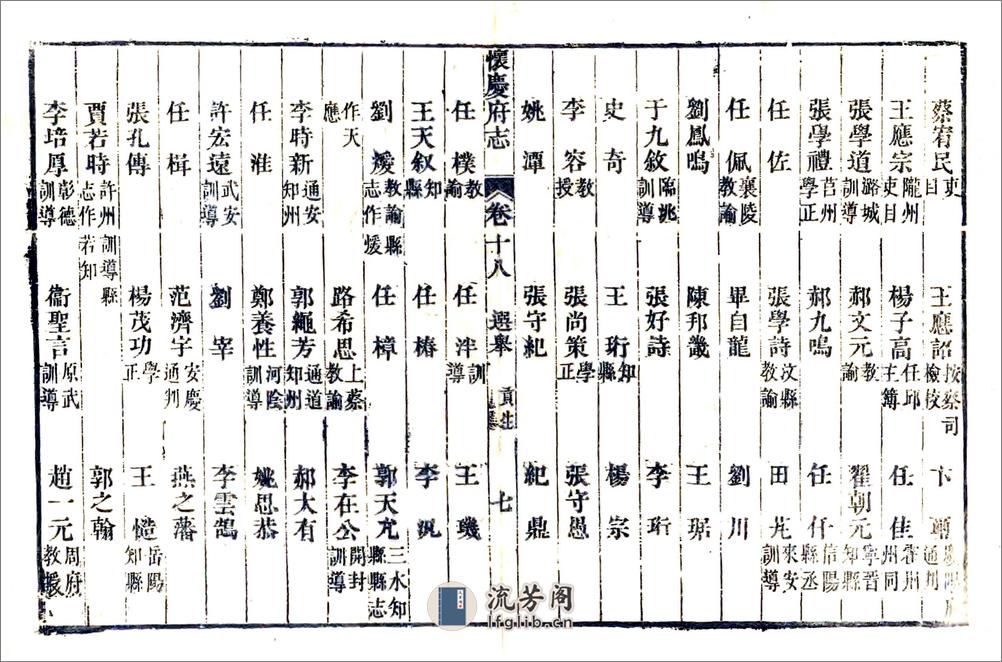 蔡宥民 吏目 王應詔 按察司檢校 卞
王應宗 隴州吏目 楊子高 任邱主簿 任佳 霍州州同
張學道 潞城訓導 郝文元 教諭 翟朝元 寧晉知縣
張學禮 莒州學正 郝九鳴 任仟 信陽縣丞
任佐 張學詩 汶縣教諭 田 來安訓導
任佩 襄陵教諭 畢自龍 劉川
劉鳳鳴 陳邦畿 王琚
于九敘 臨洮訓導 張好詩 李珩
史奇 王珩 知縣 楊宗
李容 教授 張尚策 學正 張守愚
姚潭 張守紀 紀鼎
懷慶府志 卷十八 選舉 貢生 七
任樸 教諭 任泮 訓導 王璣
王天叙 知縣 任椿 李汎
劉 教諭縣志作煖 任樟 郭天 三水知縣縣志
作天應 路希思 上蔡教諭 李在公 開封訓導
李時新 通安知州 郭繩芳 通道知州 郝大有
任淮 鄭養性 河陰訓導 姚思恭
許宏遠 武安訓導 劉宰 李雲鵠
任楫 范濟宇 安慶通判 燕之藩
張孔傳 楊茂功 學正 王愷 岳陽知縣
賈若時 許州訓導縣志作若知 郭之翰
李培厚 彰德訓導 衞聖言 原武訓導 趙一元 周府教授
流芳阁
lfglib.cn